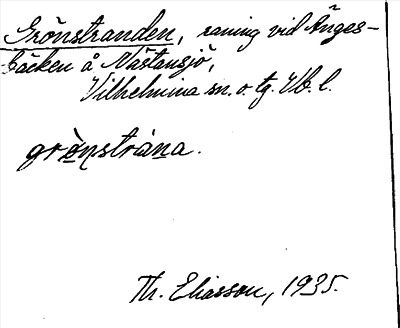 Grönstranden, raning vid Änges-
bäcken å Nästansjö,
Vilhelmina sn. o. tg. Vb. l.
grö̀nstràna.
Th. Eliasson, 1935.